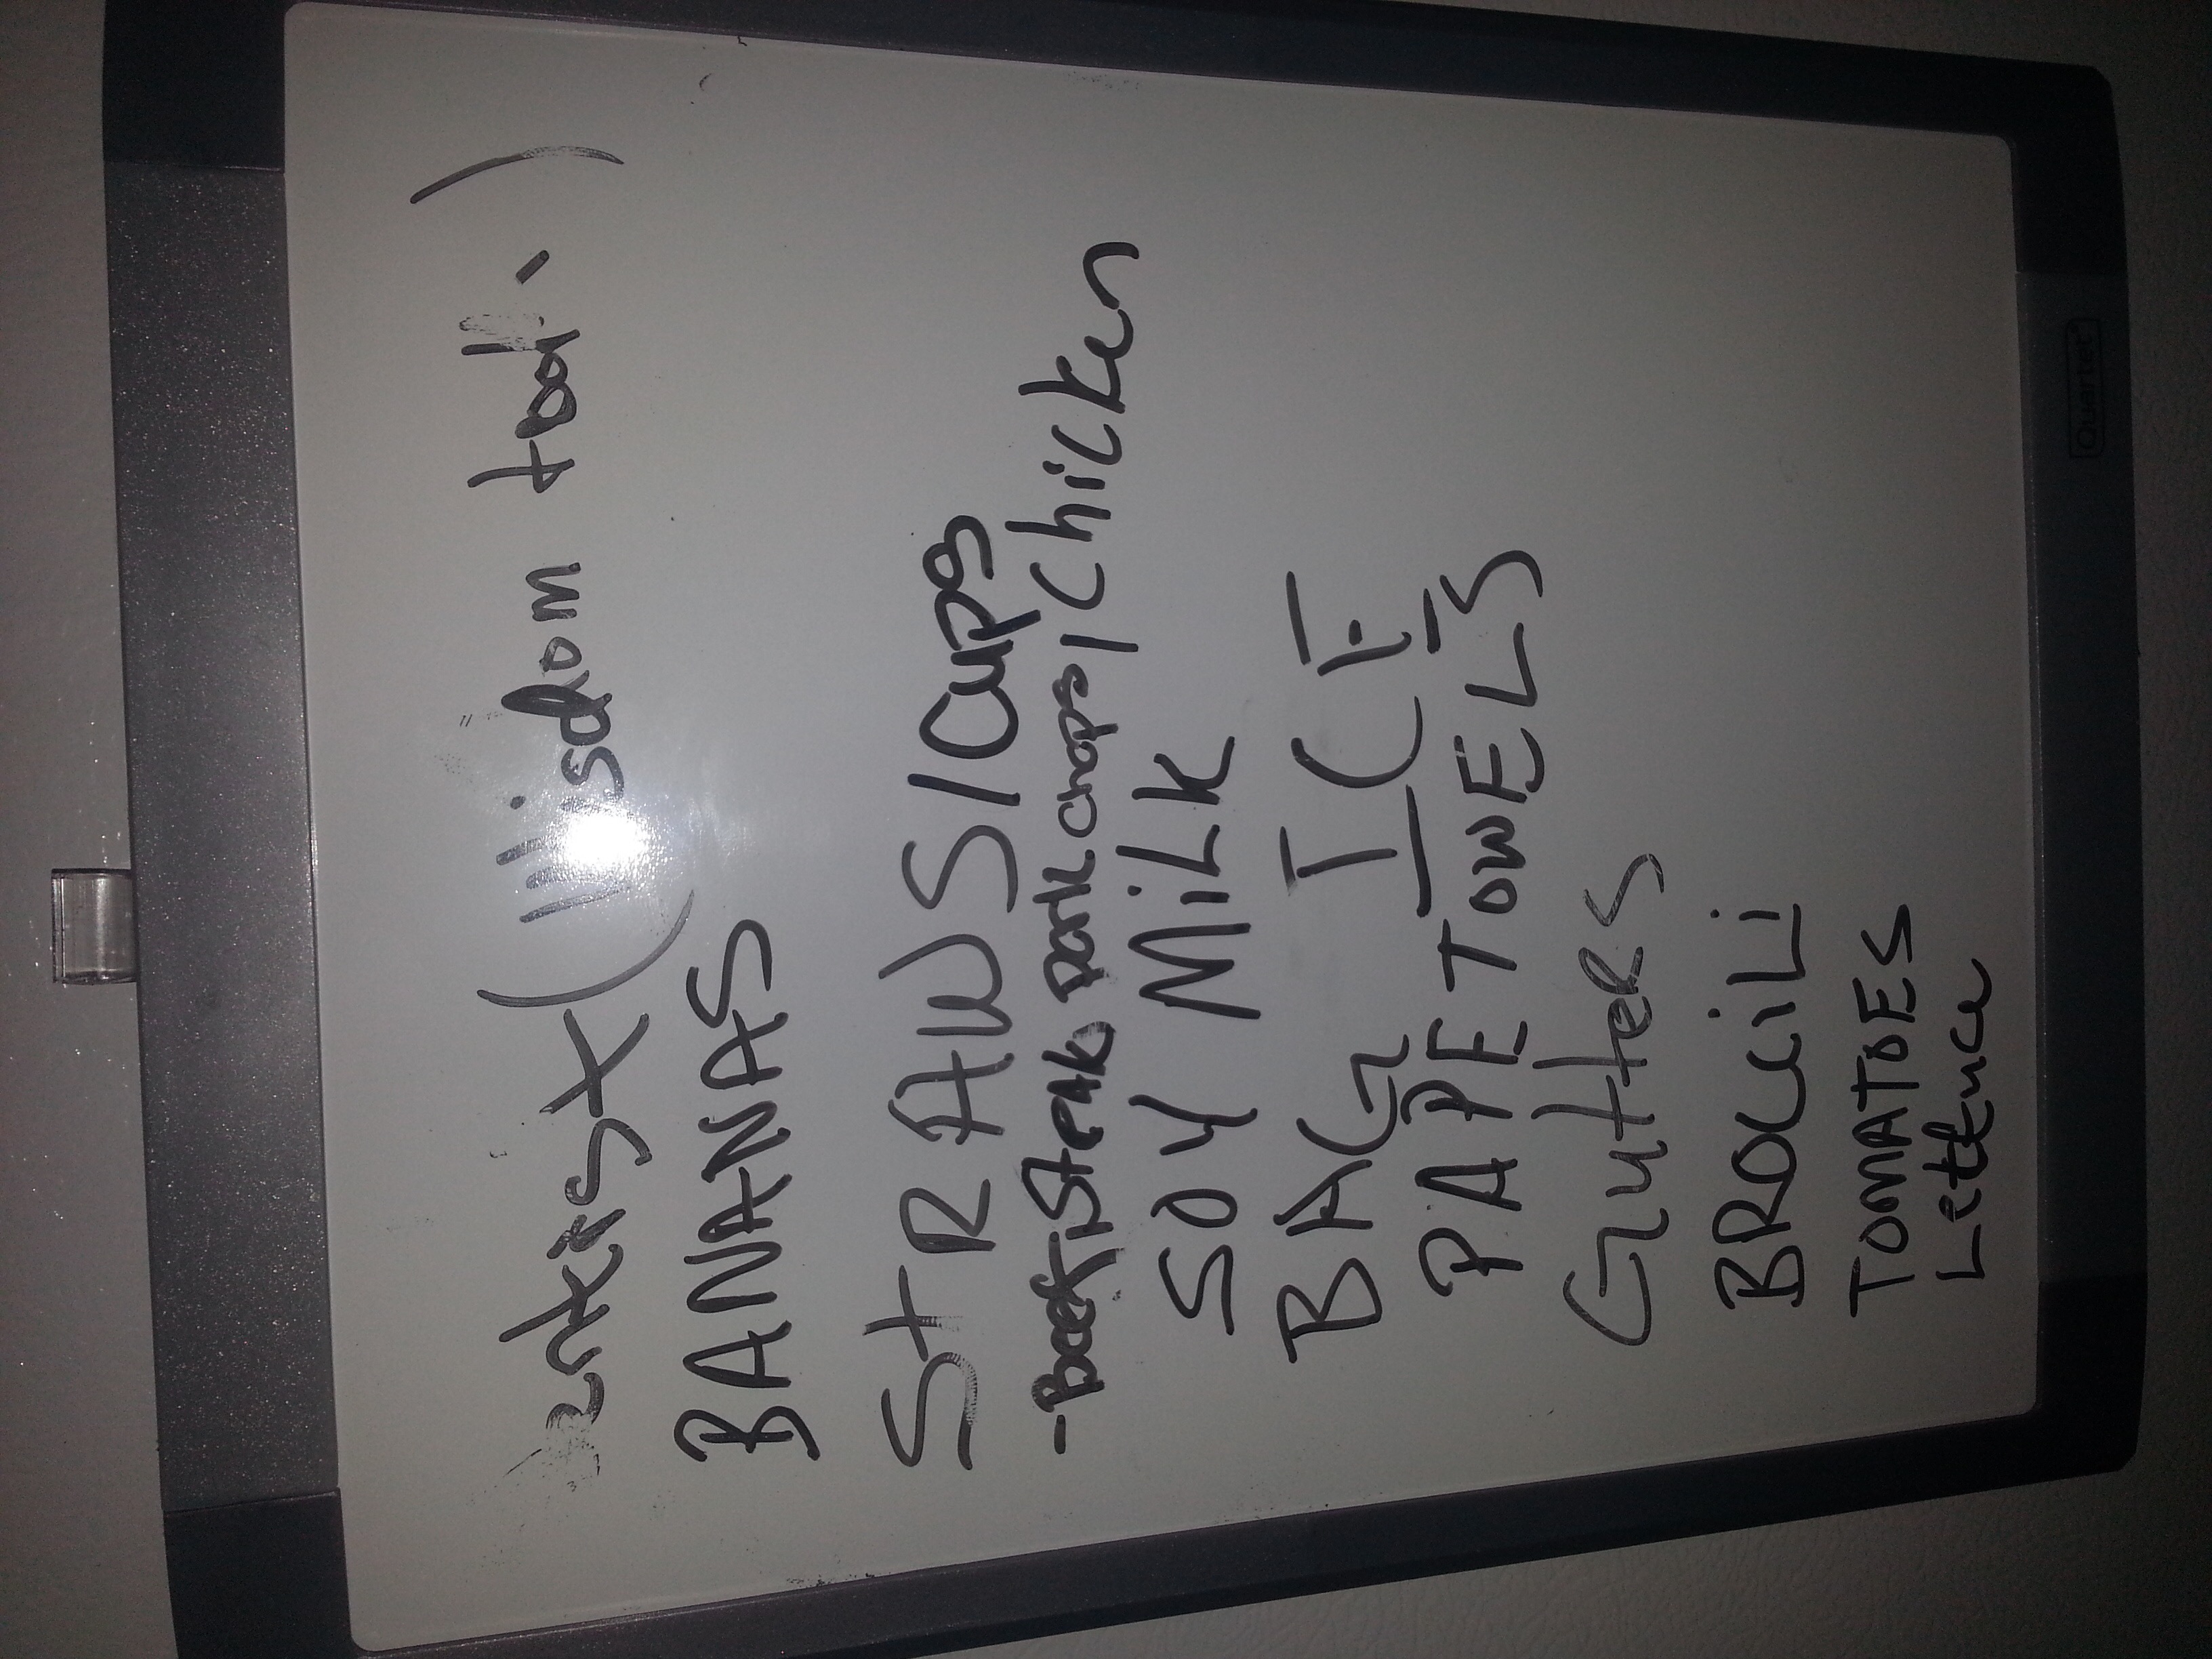 entist (Wisdom toot
BANANAS
StRAWS/Cups
-Beef, Steak pork chops, Chicken
SOY MiLK
BAG ICE
PAPE TOWELS
GutteRS
BROCCiLi
TOMATOES
Lettuce
Quartet